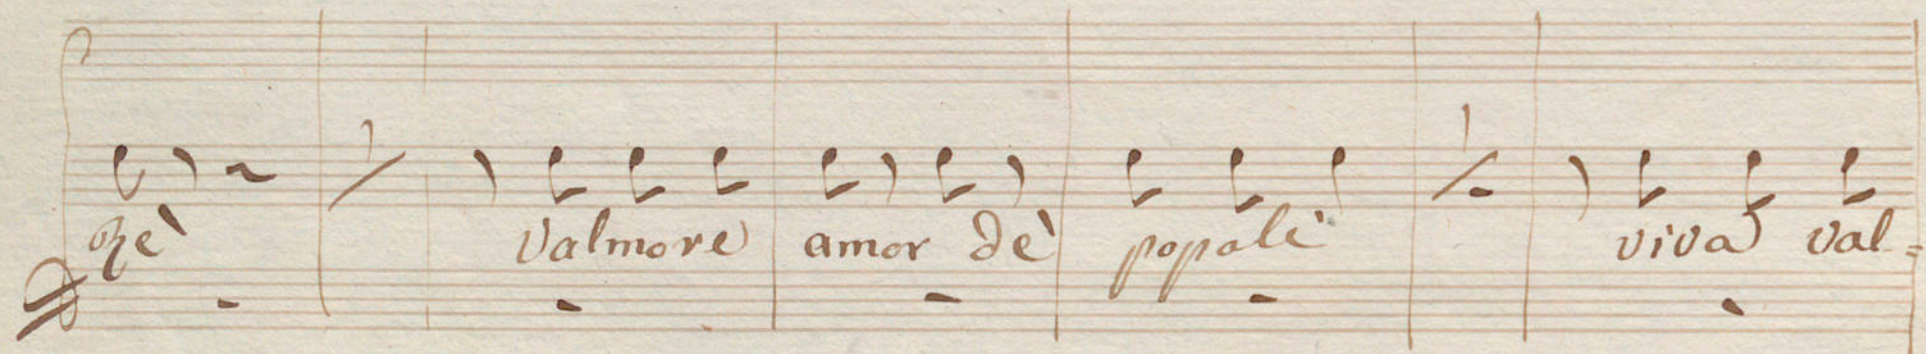 Rè valmore amor dè popoli viva val=